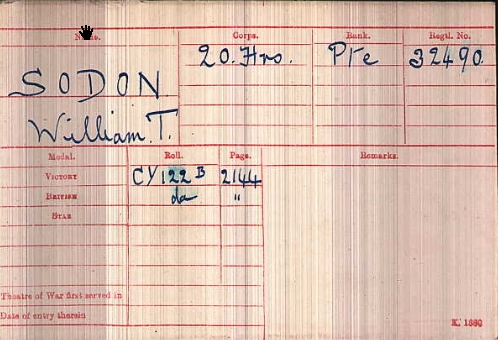 Name. Corps. Rank. Regtl. No.
SODON 20. Hrs. Pte 32490
William. T.
Medal. Roll. Page. Remarks.
VICTORY CY/122 B 2144
BRITISH do "
STAR
Theatre of War first served in
Date of entry therein
K. 1380